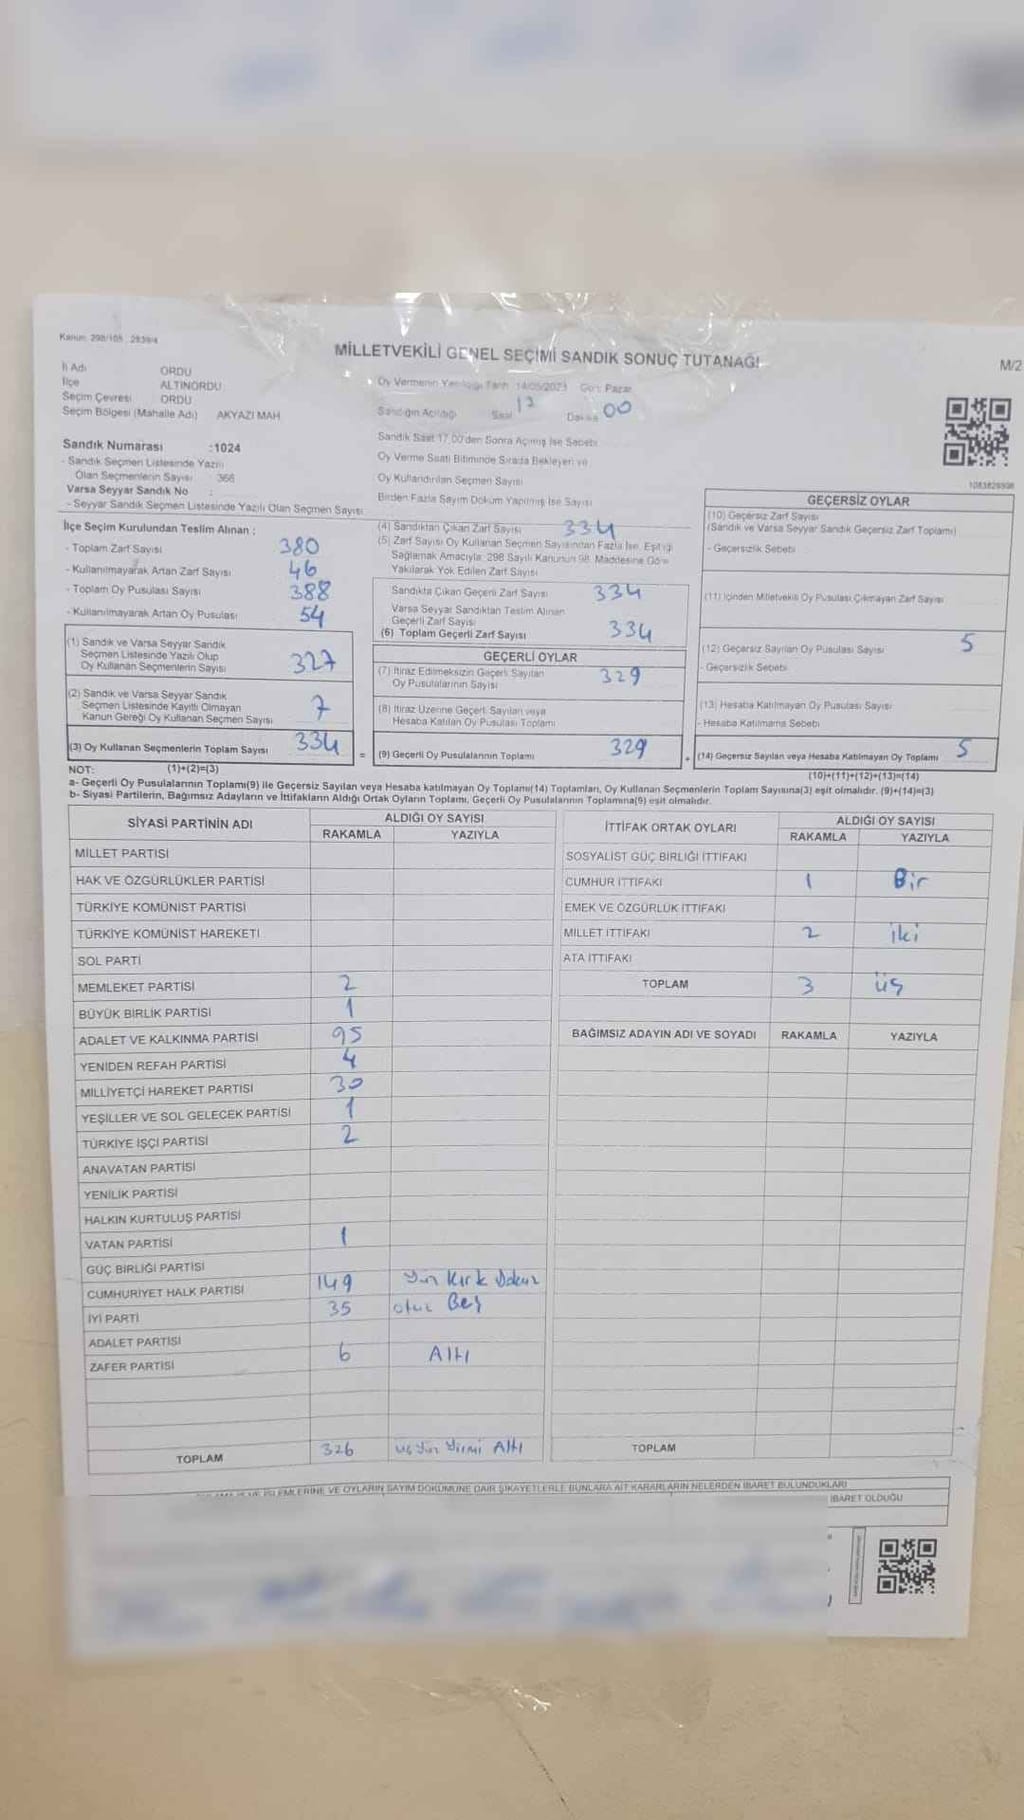 Kanun: 298/105 , 2839/4
MİLLETVEKİLİ GENEL SEÇİMİ SANDIK SONUÇ TUTANAĞI
M/2
İl Adı ORDU
İlçe ALTINORDU
Seçim Çevresi ORDU
Seçim Bölgesi (Mahalle Adı) AKYAZI MAH
Sandık Numarası :1024
- Sandık Seçmen Listesinde Yazılı
Olan Seçmenlerin Sayısı 366
Varsa Seyyar Sandık No :
- Seyyar Sandık Seçmen Listesinde Yazılı Olan Seçmen Sayısı
Oy Vermenin Yapıldığı Tarih 14/05/2023 Gün: Pazar
Sandığın Açıldığı Saat Dakika 00
Sandık Saat 17.00'den Sonra Açılmış İse Sebebi
Oy Verme Saati Bitiminde Sırada Bekleyen ve
Oy Kullandırılan Seçmen Sayısı
Birden Fazla Sayım Döküm Yapılmış İse Sayısı
1083829998
İlçe Seçim Kurulundan Teslim Alınan :
- Toplam Zarf Sayısı 380
- Kullanılmayarak Artan Zarf Sayısı 46
- Toplam Oy Pusulası Sayısı 388
- Kullanılmayarak Artan Oy Pusulası 54
(1) Sandık ve Varsa Seyyar Sandık
Seçmen Listesinde Yazılı Olup
Oy Kullanan Seçmenlerin Sayısı 327
(2) Sandık ve Varsa Seyyar Sandık
Seçmen Listesinde Kayıtlı Olmayan
Kanun Gereği Oy Kullanan Seçmen Sayısı 7
(3) Oy Kullanan Seçmenlerin Toplam Sayısı 334
(4) Sandıktan Çıkan Zarf Sayısı 334
(5) Zarf Sayısı Oy Kullanan Seçmen Sayısından Fazla İse, Eşitliği
Sağlamak Amacıyla, 298 Sayılı Kanunun 98. Maddesine Göre
Yakılarak Yok Edilen Zarf Sayısı
Sandıkta Çıkan Geçerli Zarf Sayısı 334
Varsa Seyyar Sandıktan Teslim Alınan
Geçerli Zarf Sayısı
(6) Toplam Geçerli Zarf Sayısı 334
GEÇERLİ OYLAR
(7) İtiraz Edilmeksizin Geçerli Sayılan
Oy Pusulalarının Sayısı 329
(8) İtiraz Üzerine Geçerli Sayılan veya
Hesaba Katılan Oy Pusulası Toplamı
= (9) Geçerli Oy Pusulalarının Toplamı 329
GEÇERSİZ OYLAR
(10) Geçersiz Zarf Sayısı
(Sandık ve Varsa Seyyar Sandık Geçersiz Zarf Toplamı)
- Geçersizlik Sebebi
(11) İçinden Milletvekili Oy Pusulası Çıkmayan Zarf Sayısı
(12) Geçersiz Sayılan Oy Pusulası Sayısı 5
- Geçersizlik Sebebi
(13) Hesaba Katılmayan Oy Pusulası Sayısı
- Hesaba Katılmama Sebebi
+ (14) Geçersiz Sayılan veya Hesaba Katılmayan Oy Toplamı 5
NOT: (1)+(2)=(3)
(10)+(11)+(12)+(13)=(14)
a- Geçerli Oy Pusulalarının Toplamı(9) ile Geçersiz Sayılan veya Hesaba katılmayan Oy Toplamı(14) Toplamları, Oy Kullanan Seçmenlerin Toplam Sayısına(3) eşit olmalıdır. (9)+(14)=(3)
b- Siyasi Partilerin, Bağımsız Adayların ve İttifakların Aldığı Ortak Oyların Toplamı, Geçerli Oy Pusulalarının Toplamına(9) eşit olmalıdır.
SİYASİ PARTİNİN ADI ALDIĞI OY SAYISI
RAKAMLA YAZIYLA
MİLLET PARTİSİ
HAK VE ÖZGÜRLÜKLER PARTİSİ
TÜRKİYE KOMÜNİST PARTİSİ
TÜRKİYE KOMÜNİST HAREKETİ
SOL PARTİ
MEMLEKET PARTİSİ 2
BÜYÜK BİRLİK PARTİSİ 1
ADALET VE KALKINMA PARTİSİ 95
YENİDEN REFAH PARTİSİ 4
MİLLİYETÇİ HAREKET PARTİSİ 30
YEŞİLLER VE SOL GELECEK PARTİSİ 1
TÜRKİYE İŞÇİ PARTİSİ 2
ANAVATAN PARTİSİ
YENİLİK PARTİSİ
HALKIN KURTULUŞ PARTİSİ
VATAN PARTİSİ 1
GÜÇ BİRLİĞİ PARTİSİ
CUMHURİYET HALK PARTİSİ 149 Yüz Kırk Dokuz
İYİ PARTİ 35 otuz Beş
ADALET PARTİSİ
ZAFER PARTİSİ 6 Altı
TOPLAM 326 üç Yüz Yirmi Altı
İTTİFAK ORTAK OYLARI ALDIĞI OY SAYISI
RAKAMLA YAZIYLA
SOSYALİST GÜÇ BİRLİĞİ İTTİFAKI
CUMHUR İTTİFAKI 1 Bir
EMEK VE ÖZGÜRLÜK İTTİFAKI
MİLLET İTTİFAKI 2 iki
ATA İTTİFAKI
TOPLAM 3 üç
BAĞIMSIZ ADAYIN ADI VE SOYADI RAKAMLA YAZIYLA
TOPLAM
İŞLEMLERİNE VE OYLARIN SAYIM DÖKÜMÜNE DAİR ŞİKAYETLERLE BUNLARA AİT KARARLARIN NELERDEN İBARET BULUNDUKLARI
İBARET OLDUĞU